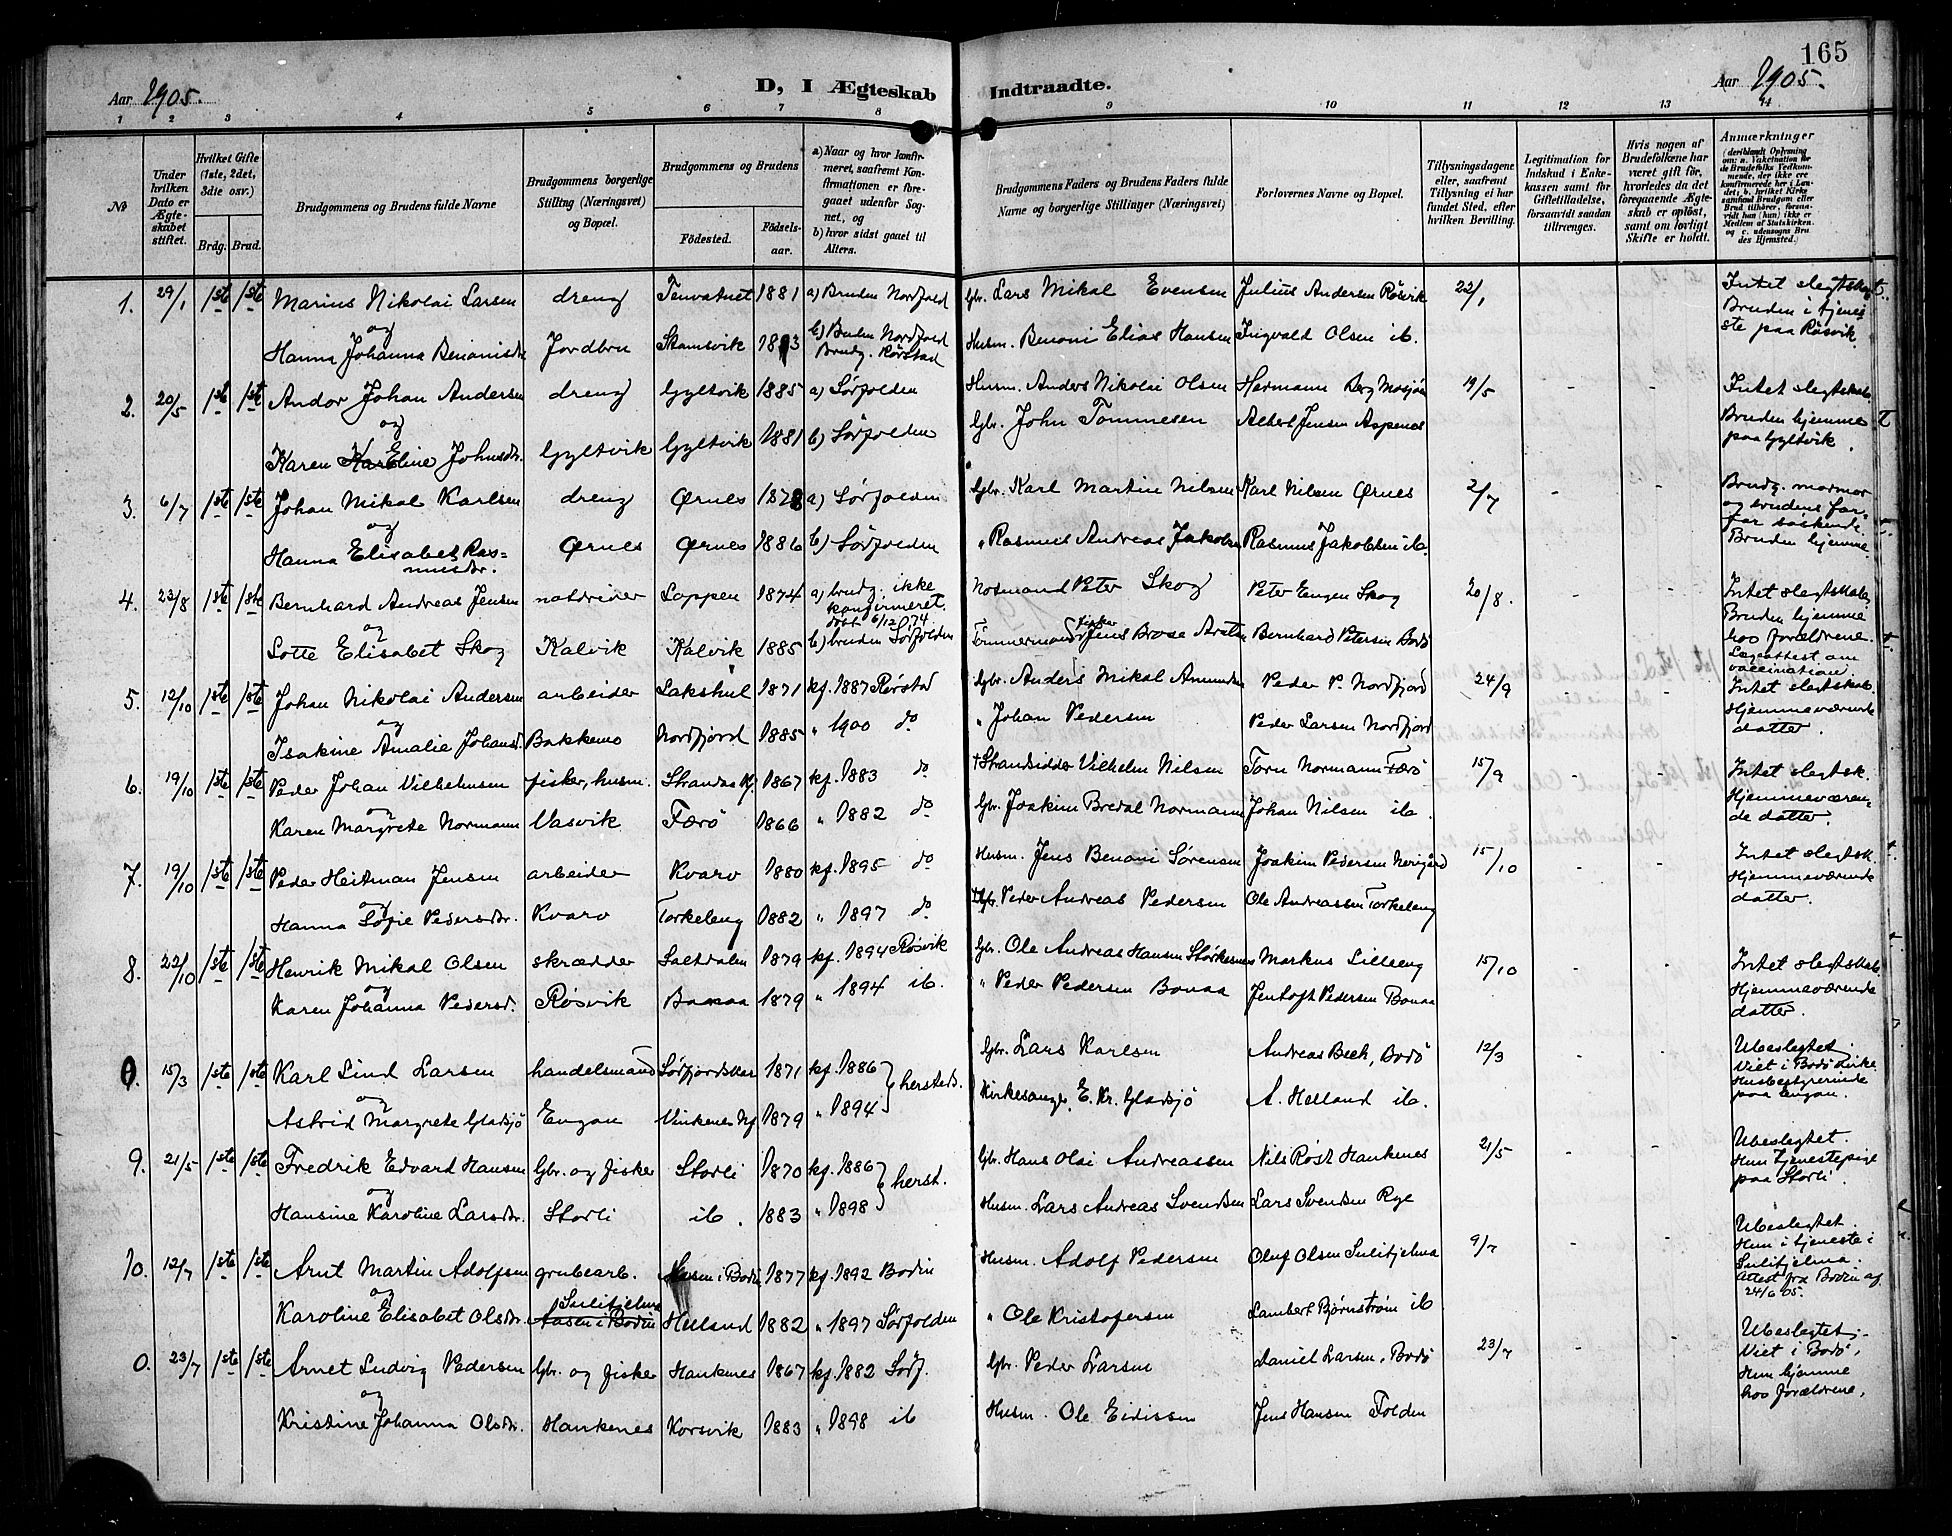 165
Aar 1905. D, I Ægteskab Indtraadte. Aar 1905.
1 2 3 4 5 6 7 8 9 10 11 12 13 14
No
Under hvilken Dato er Ægteskabet stiftet.
Hvilket Gifte (1ste, 2det, 3die osv.)
Brdg. Brud.
Brudgommens og Brudens fulde Navne
Brudgommens borgerlige Stilling (Næringsvei) og Bopæl.
Brudgommens og Brudens
Födested. Födselsaar.
a) Naar og hvor konfirmeret, saafremt Konfirmationen er foregaaet udenfor Sognet, og
b) hvor sidst gaaet til Alters.
Brudgommens Faders og Brudens Faders fulde Navne og borgerlige Stillinger (Næringsvei)
Forlovernes Navne og Bopæl.
Tillysningsdagene eller, saafremt Tillysning ei har fundet Sted, efter hvilken Bevilling.
Legitimation for Indskud i Enkekassen samt for Giftetilladelse, forsaavidt saadan tiltrænges.
Hvis nogen af Brudefolkene har været gift før, hvorledes da det foregaaende Ægteskab er opløst, samt om lovligt Skifte er holdt.
Anmærkninger
1. 29/1 1ste 1ste Marius Nikolai Larsen dreng Tenvatnet 1881 a) Bruden Nordfold Gbr. Lars Mikal Evensen Julius Andersen Røsvik 22/1 Intet slegtskap.
og b) Bruden Nordfold Bruden i tjeneste paa Røsvik.
Hanna Johanna Benonisdr Jordbru Stamsvik 1883 Brudg. Rørstad Husm. Benoni Elias Hansen Ingvald Olsen ib.
2. 20/5 1ste 1ste Andor Johan Andersen dreng Gyltvik 1885 a) Sørfolden Husm. Anders Nikolai Olsen Hermann Berg Mosjøen 19/5 - - Intet slegtskab.
og Bruden hjemme
Karen Eline Johnsdr. Gyltvik Gyltvik 1881 b) Sørfolden Gbr. John Tommesen Albert Jensen Aspenes paa Gyltvik.
3. 6/7 1ste 1ste Johan Mikal Karlsen dreng Ørnes 1878 a) Sørfolden Gbr. Karl Martin Nilsen Karl Nilsen Ørnes 2/7 - - Brudg. mormor
og og brudens farfar søskende
Hanna Elisabet Rasmusdr. Ørnes Ørnes 1886 b) Sørfolden " Rasmus Andreas Jakobsen Rasmus Jakobsen ib. Bruden hjemme.
4. 23/8 1ste 1ste Bernhard Andreas Jensen notdriver Loppen 1874 a) brudg. ikke konfirmeret. døbt 6/12 74 Notmand Peter Skog Peter Eugen Skog 20/8. - - Intet slegtskab.
og Bruden hjemme hos forældrene.
Lotte Elisabet Skog Kalvik Kalvik 1885 b) bruden Sørfolden Tømmermand fisker Jens Brose Bernhard Petersen Bodø Lægeattest om vaccination.
5. 12/10 1ste 1ste Johan Nikolai Andersen arbeider Lakshul 1871 kf. 1887 Rørstad Gbr. Anders Mikal Amundsen Peder P. Nordfjord 24/9 - - Intet slegtskab.
og Hjemmeværende
Isakine Amalie Johansd. Bakkemo Nordfjord 1885 " 1900 do " Johan Pedersen Peder Larsen Nordfjord datter.
6. 19/10 1ste 1ste Peder Johan Vilhelmsen fisker, husm. 1867 kf. 1883 do † Strandsidder Vilhelm Nilsen Torn Normann Færø 15/9 - - Intet slegtsk.
og Hjemmeværende
Karen Margrete Normann Vasvik Færø 1866 " 1882 do Gbr. Joakim Bredal Normann Johan Nilsen ib. datter.
7. 19/10 1ste 1ste Peder Heitman Jensen arbeider Kvarv 1880 kf. 1895 do Husm. Jens Benoni Sørensen Joakim Pedersen Nerigård 15/10 - - Intet slegtsk.
og Hjemmeværende
Hanna Sofie Pedersdr. Kvarv Torkeleng 1882 " 1897 do Peder Andreas Pedersen Ole Andreassen Torkeleng datter.
8. 22/10 1ste 1ste Henrik Mikal Olsen skrædder Saltdalen 1879 kf. 1894 Røsvik Gbr. Ole Andreas Hansen Markus Lilleeng 15/10 - - Intet slegtskab.
og Hjemmeværende
Karen Johanna Pedersd. Røsvik Bonaa 1879 " 1894 ib. " Peder Pedersen Bonaa Jentoft Pedersen Bonaa datter.
0. 15/3 1ste 1ste Karl Lind Larsen handelsmand Sørfjordskar 1871 kf. 1886 hersteds. Gbr. Lars Karlsen Andreas Beck, Bodø 12/3 - - Ubeslegtet.
og Viet i Bodø kirke.
Astrid Margrete Gladsjø Engan 1879 " 1894 Kirkesanger E. Kr. Gladsjø A. Helland ib. Husbestyrerinde paa Engan.
9. 21/5 1ste 1ste Fredrik Edvard Hansen Gbr. og fisker Storli 1870 kf. 1886 herst. Gbr. Hans Olai Andreassen Nils Røst Hankenes 21/5 - - Ubeslegtet.
og Hun tjenestepige
Hansine Karoline Larsdr. Storli ib. 1883 " 1898 Husm. Lars Andreas Svendsen Lars Svendsen Rye paa Storli.
10. 12/7 1ste 1ste Arnt Martin Adolfsen grubearb. Aasen i Bodin 1877 kf. 1892 Bodin Husm. Adolf Pedersen Oluf Olsen Sulitjelma 9/7 - - Ubeslegtet.
og Sulitjelma Hun i tjeneste i Sulitjelma.
Karoline Elisabet Olsdr. Aasen i Bodin Helland 1882 " 1897 Sørfolden " Ole Kristofersen Lambert Bjørnstrøm ib Attest fra Bodin af 24/6 05.
0. 23/7 1ste 1ste Arnet Ludvig Pedersen Gbr. og fisker Hankenes 1867 kf. 1882 Sørf. Gbr. Peder Larsen Daniel Larsen, Bodø 23/7 - - Ubeslegtet.
og Viet i Bodø.
Kristine Johanna Olsdr. Hankenes Korsvik 1883 " 1898 ib Husm. Ole Eidissen Jens Hansen Folden Hun hjemme hos forældrene.